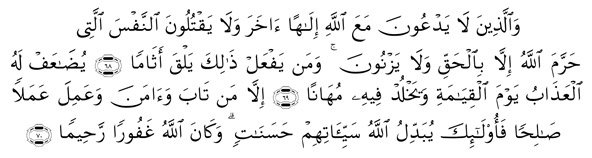 وَٱلَّذِينَ لَا يَدْعُونَ مَعَ ٱللَّهِ إِلَـٰهًا ءَاخَرَ وَلَا يَقْتُلُونَ ٱلنَّفْسَ ٱلَّتِى
حَرَّمَ ٱللَّهُ إِلَّا بِٱلْحَقِّ وَلَا يَزْنُونَ ۚ وَمَن يَفْعَلْ ذَٰلِكَ يَلْقَ أَثَامًا ﴿٦٨﴾ يُضَـٰعَفْ لَهُ
ٱلْعَذَابُ يَوْمَ ٱلْقِيَـٰمَةِ وَيَخْلُدْ فِيهِۦ مُهَانًا ﴿٦٩﴾ إِلَّا مَن تَابَ وَءَامَنَ وَعَمِلَ عَمَلًا
صَـٰلِحًا فَأُو۟لَـٰٓئِكَ يُبَدِّلُ ٱللَّهُ سَيِّـَٔاتِهِمْ حَسَنَـٰتٍ ۗ وَكَانَ ٱللَّهُ غَفُورًا رَّحِيمًا ﴿٧٠﴾